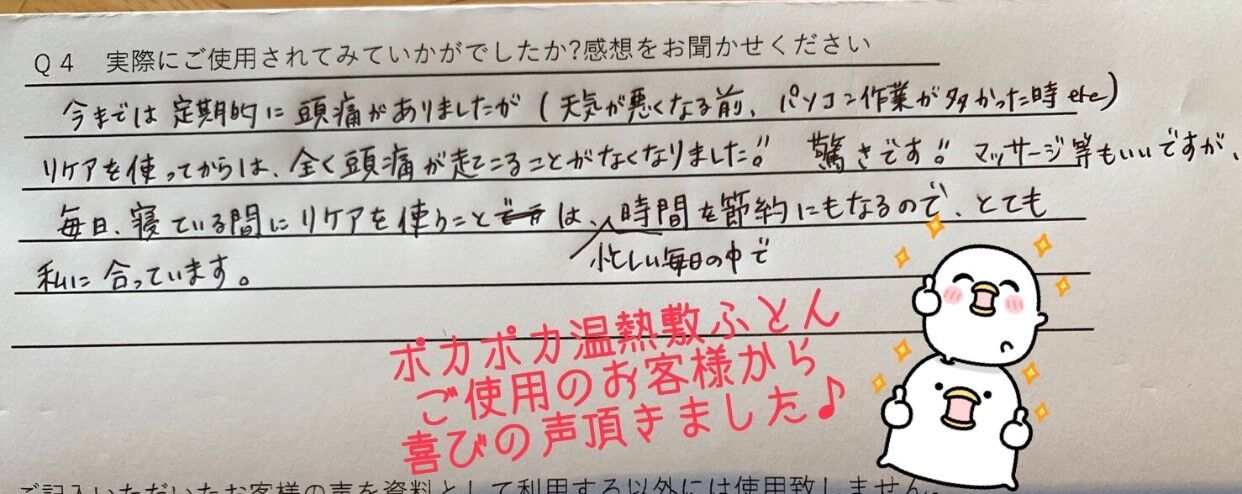 Q4 実際にご使用されてみていかがでしたか?感想をお聞かせください
今までは定期的に頭痛がありましたが(天気が悪くなる前、パソコン作業が多かった時etc)
リケアを使ってからは、全く頭痛が起こることがなくなりました!! 驚きです!! マッサージ等もいいですが、
毎日、寝ている間にリケアを使うことは、時間を節約にもなるので、とても
忙しい毎日の中で
私に合っています。
ポカポカ温熱敷ふとん
ご使用のお客様から
喜びの声頂きました♪
ご記入いただいたお客様の声を資料として利用する以外には使用致しません。